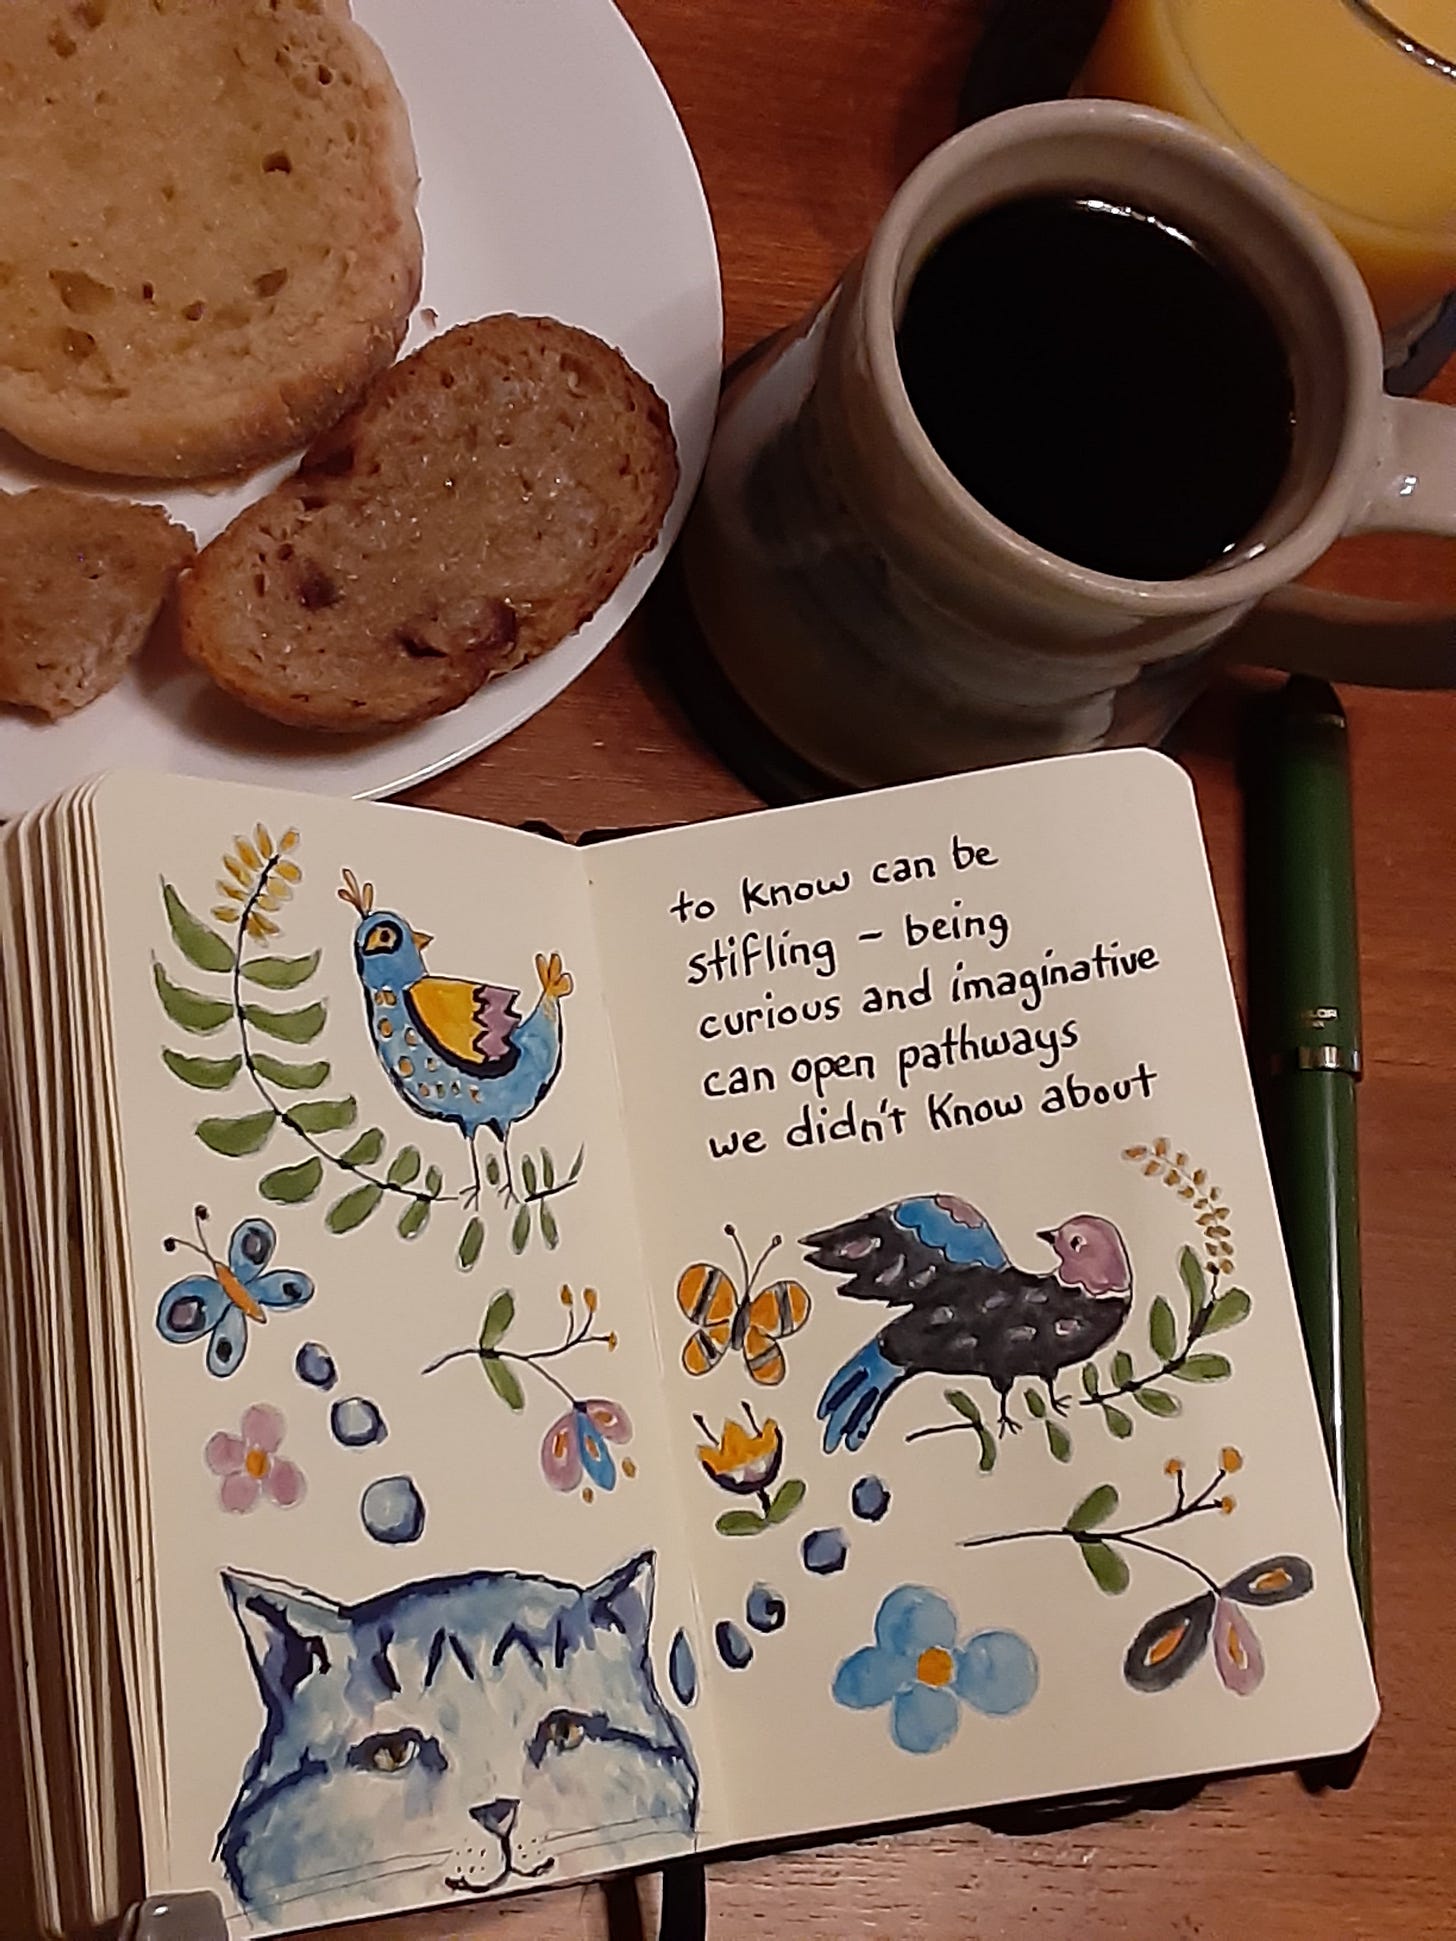 to know can be
stifling – being
curious and imaginative
can open pathways
we didn't know about